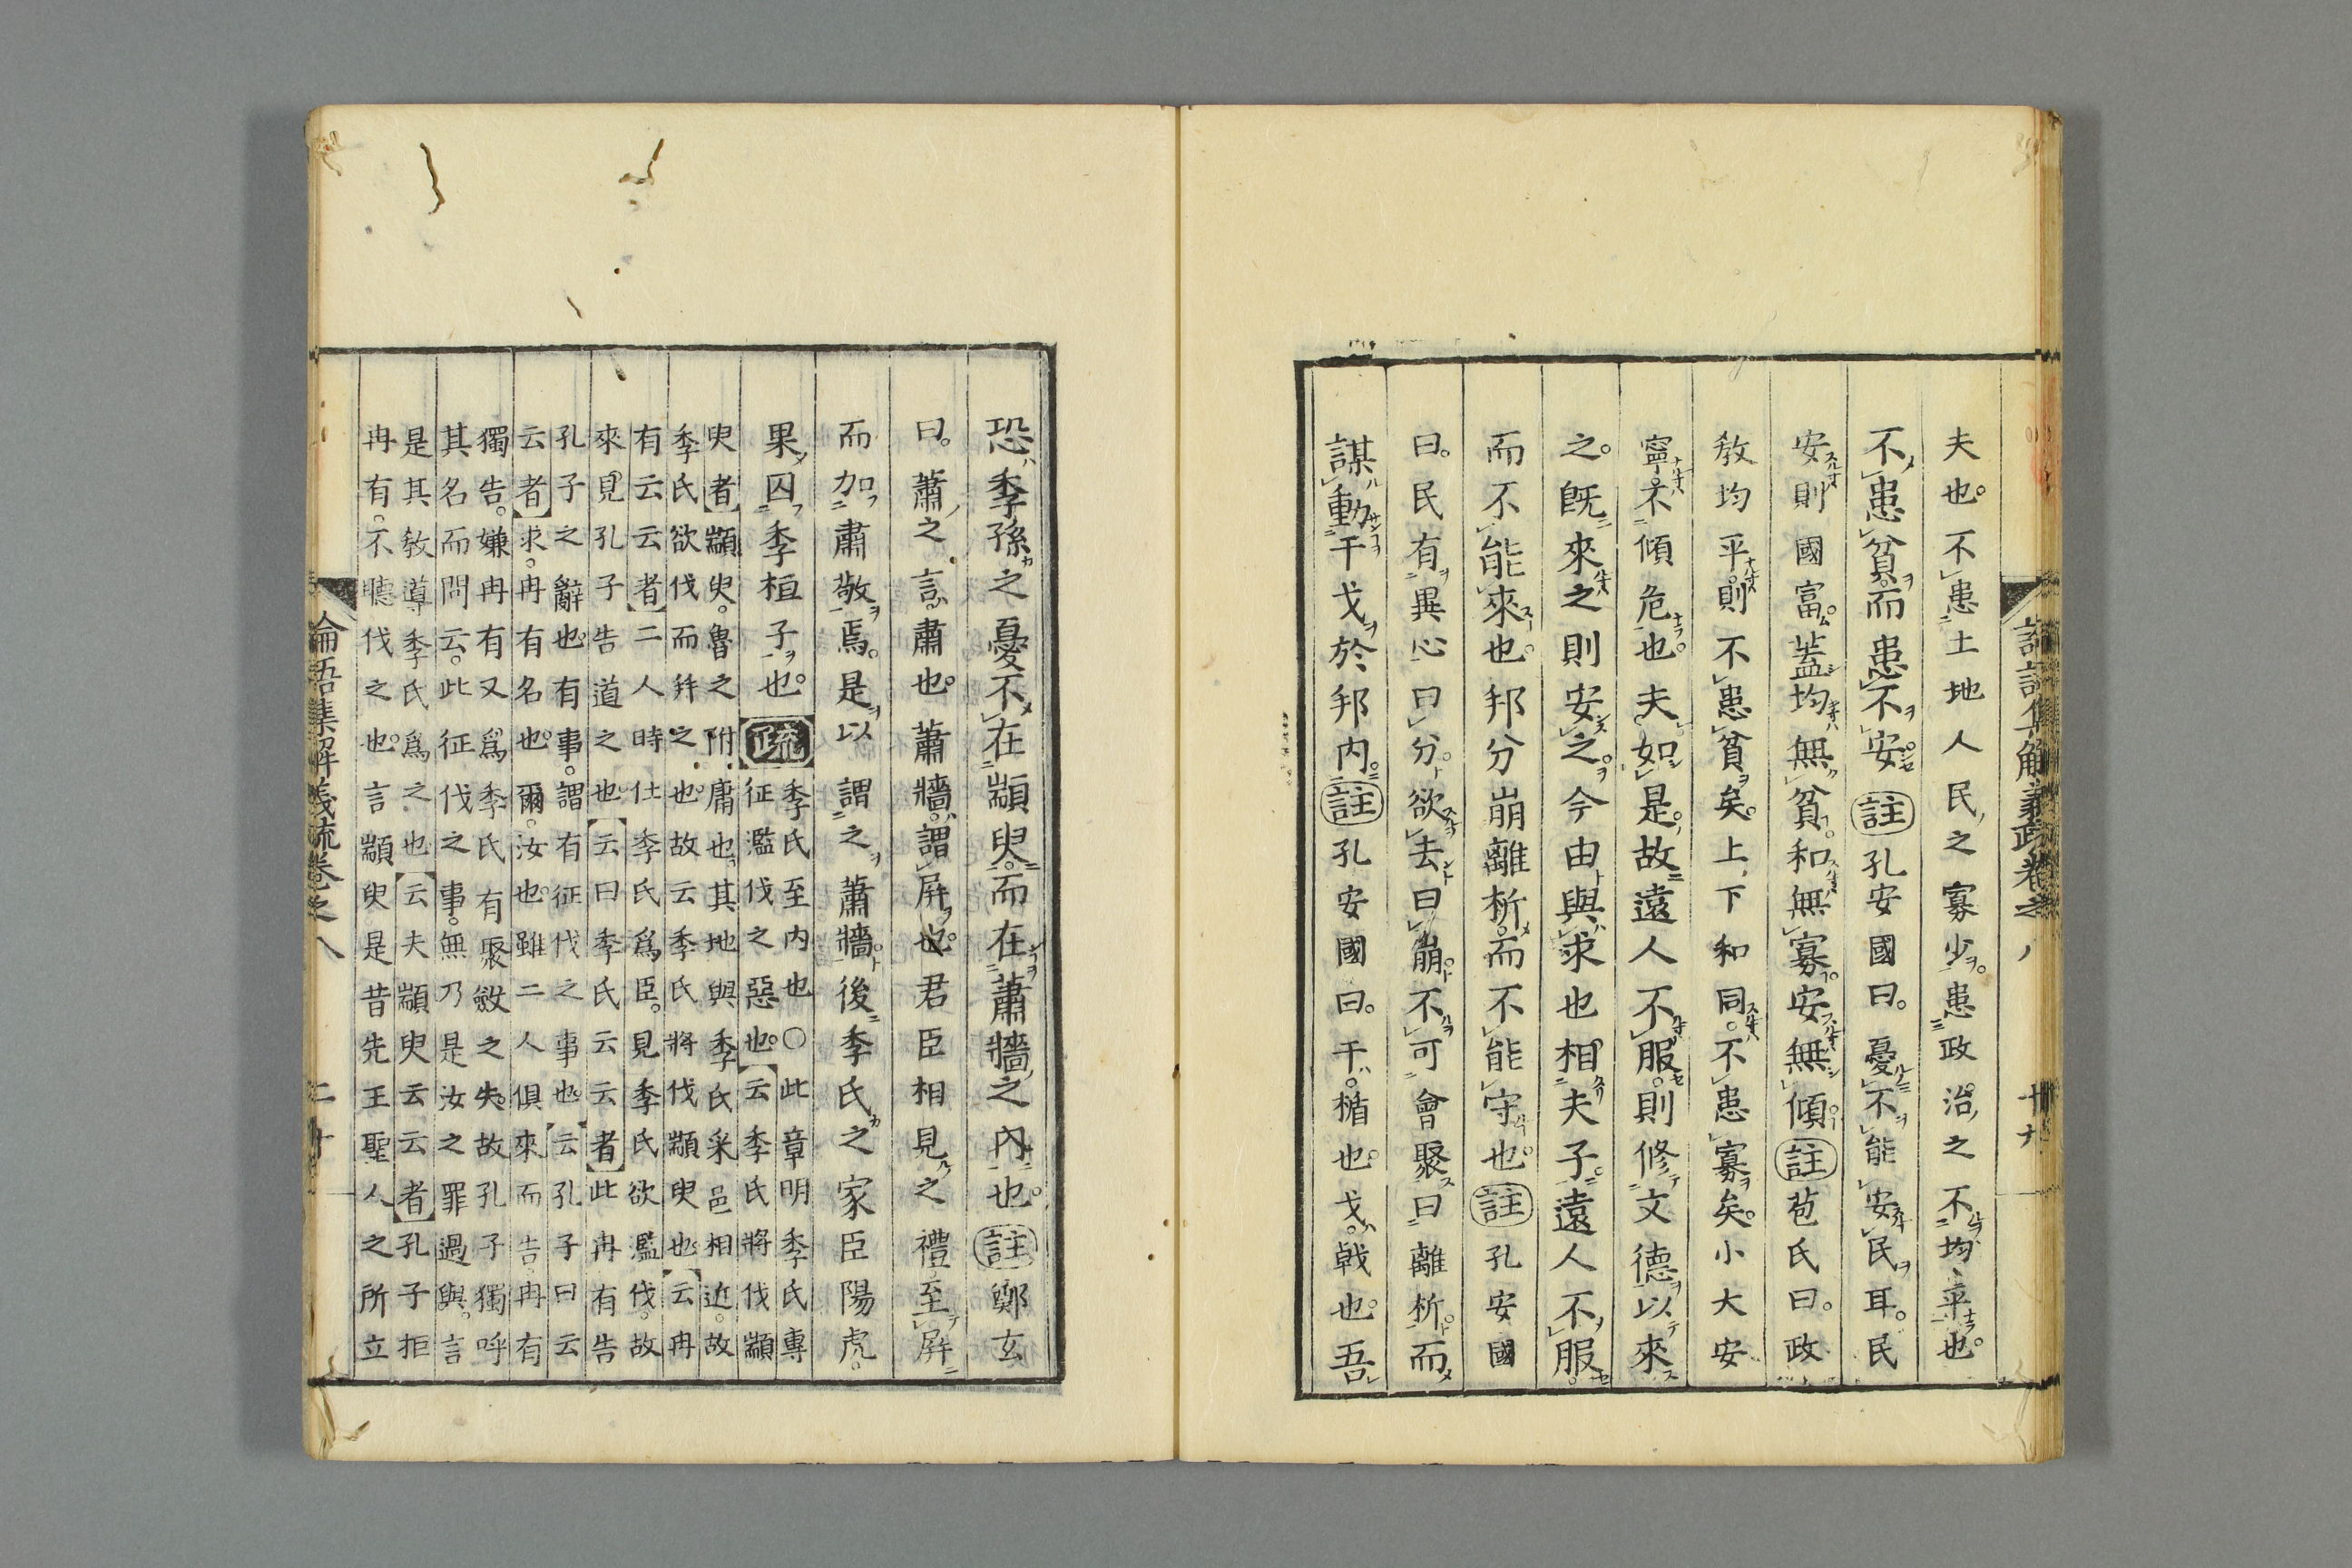 夫也。不患土地人民之寡少。患政治之不均平也。
不患貧。而患不安註孔安國曰。憂不能安民耳。民
安則國富。蓋均無貧。和無寡。安無傾。註苞氏曰。政
教均平。則不患貧矣。上下和同。不患寡矣。小大安
寧。不傾危也。夫如是。故遠人不服。則修文德以來
之。既來之則安之。今由與求也相夫子。遠人不服。
而不能來也。邦分崩離析。而不能守也。註孔安國
曰。民有異心曰分。欲去曰崩。不可會聚曰離析。而
謀動干戈於邦内。註孔安國曰。干。楯也。戈。戟也。吾
恐季孫之憂不在顓臾。而在蕭牆之內也。註鄭玄
曰。蕭之言肅也。蕭牆謂屏也。君臣相見之禮。至屏
而加肅敬焉。是以謂之蕭牆。後季氏之家臣陽虎。
果囚季桓子也。疏
季氏至内也〇此章明季氏專
征濫伐之惡也。【云季氏將伐顓
臾者】顓臾。魯之附庸也。其地與季氏采邑相近。故
季氏欲伐而并之也。故云季氏將伐顓臾也。【云冉
有云云者】二人時仕季氏爲臣。見季氏欲濫伐。故
來見孔子告道之也。【云曰季氏云云者】此冉有告
孔子之辭也。有事。謂有征伐之事也。【云孔子曰云
云者】求。冉有名也。爾。汝也。雖二人俱來而告。冉有
獨告。嫌冉有又爲季氏有聚斂之失。故孔子獨呼
其名而問云。此征伐之事。無乃是汝之罪過與。言
是其教導季氏爲之也【云夫顓臾云云者】孔子拒
冉有。不聽伐之也。言顓臾是昔先王聖人之所立
論語集解義疏卷之八
二十